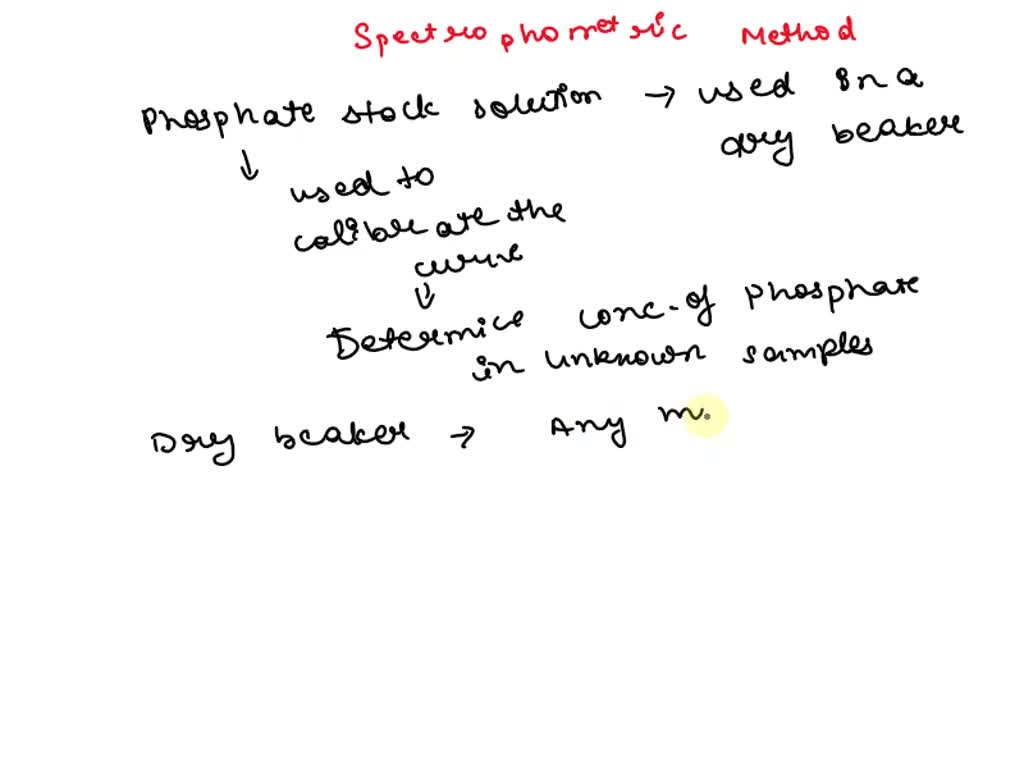 Spectrophometric Method
Phosphate stock solution → used in a
dry beaker
↓ used to
calibrate the
curve
↓
Determice conc. of phosphate
in unknown samples
Dry beaker → Any m.